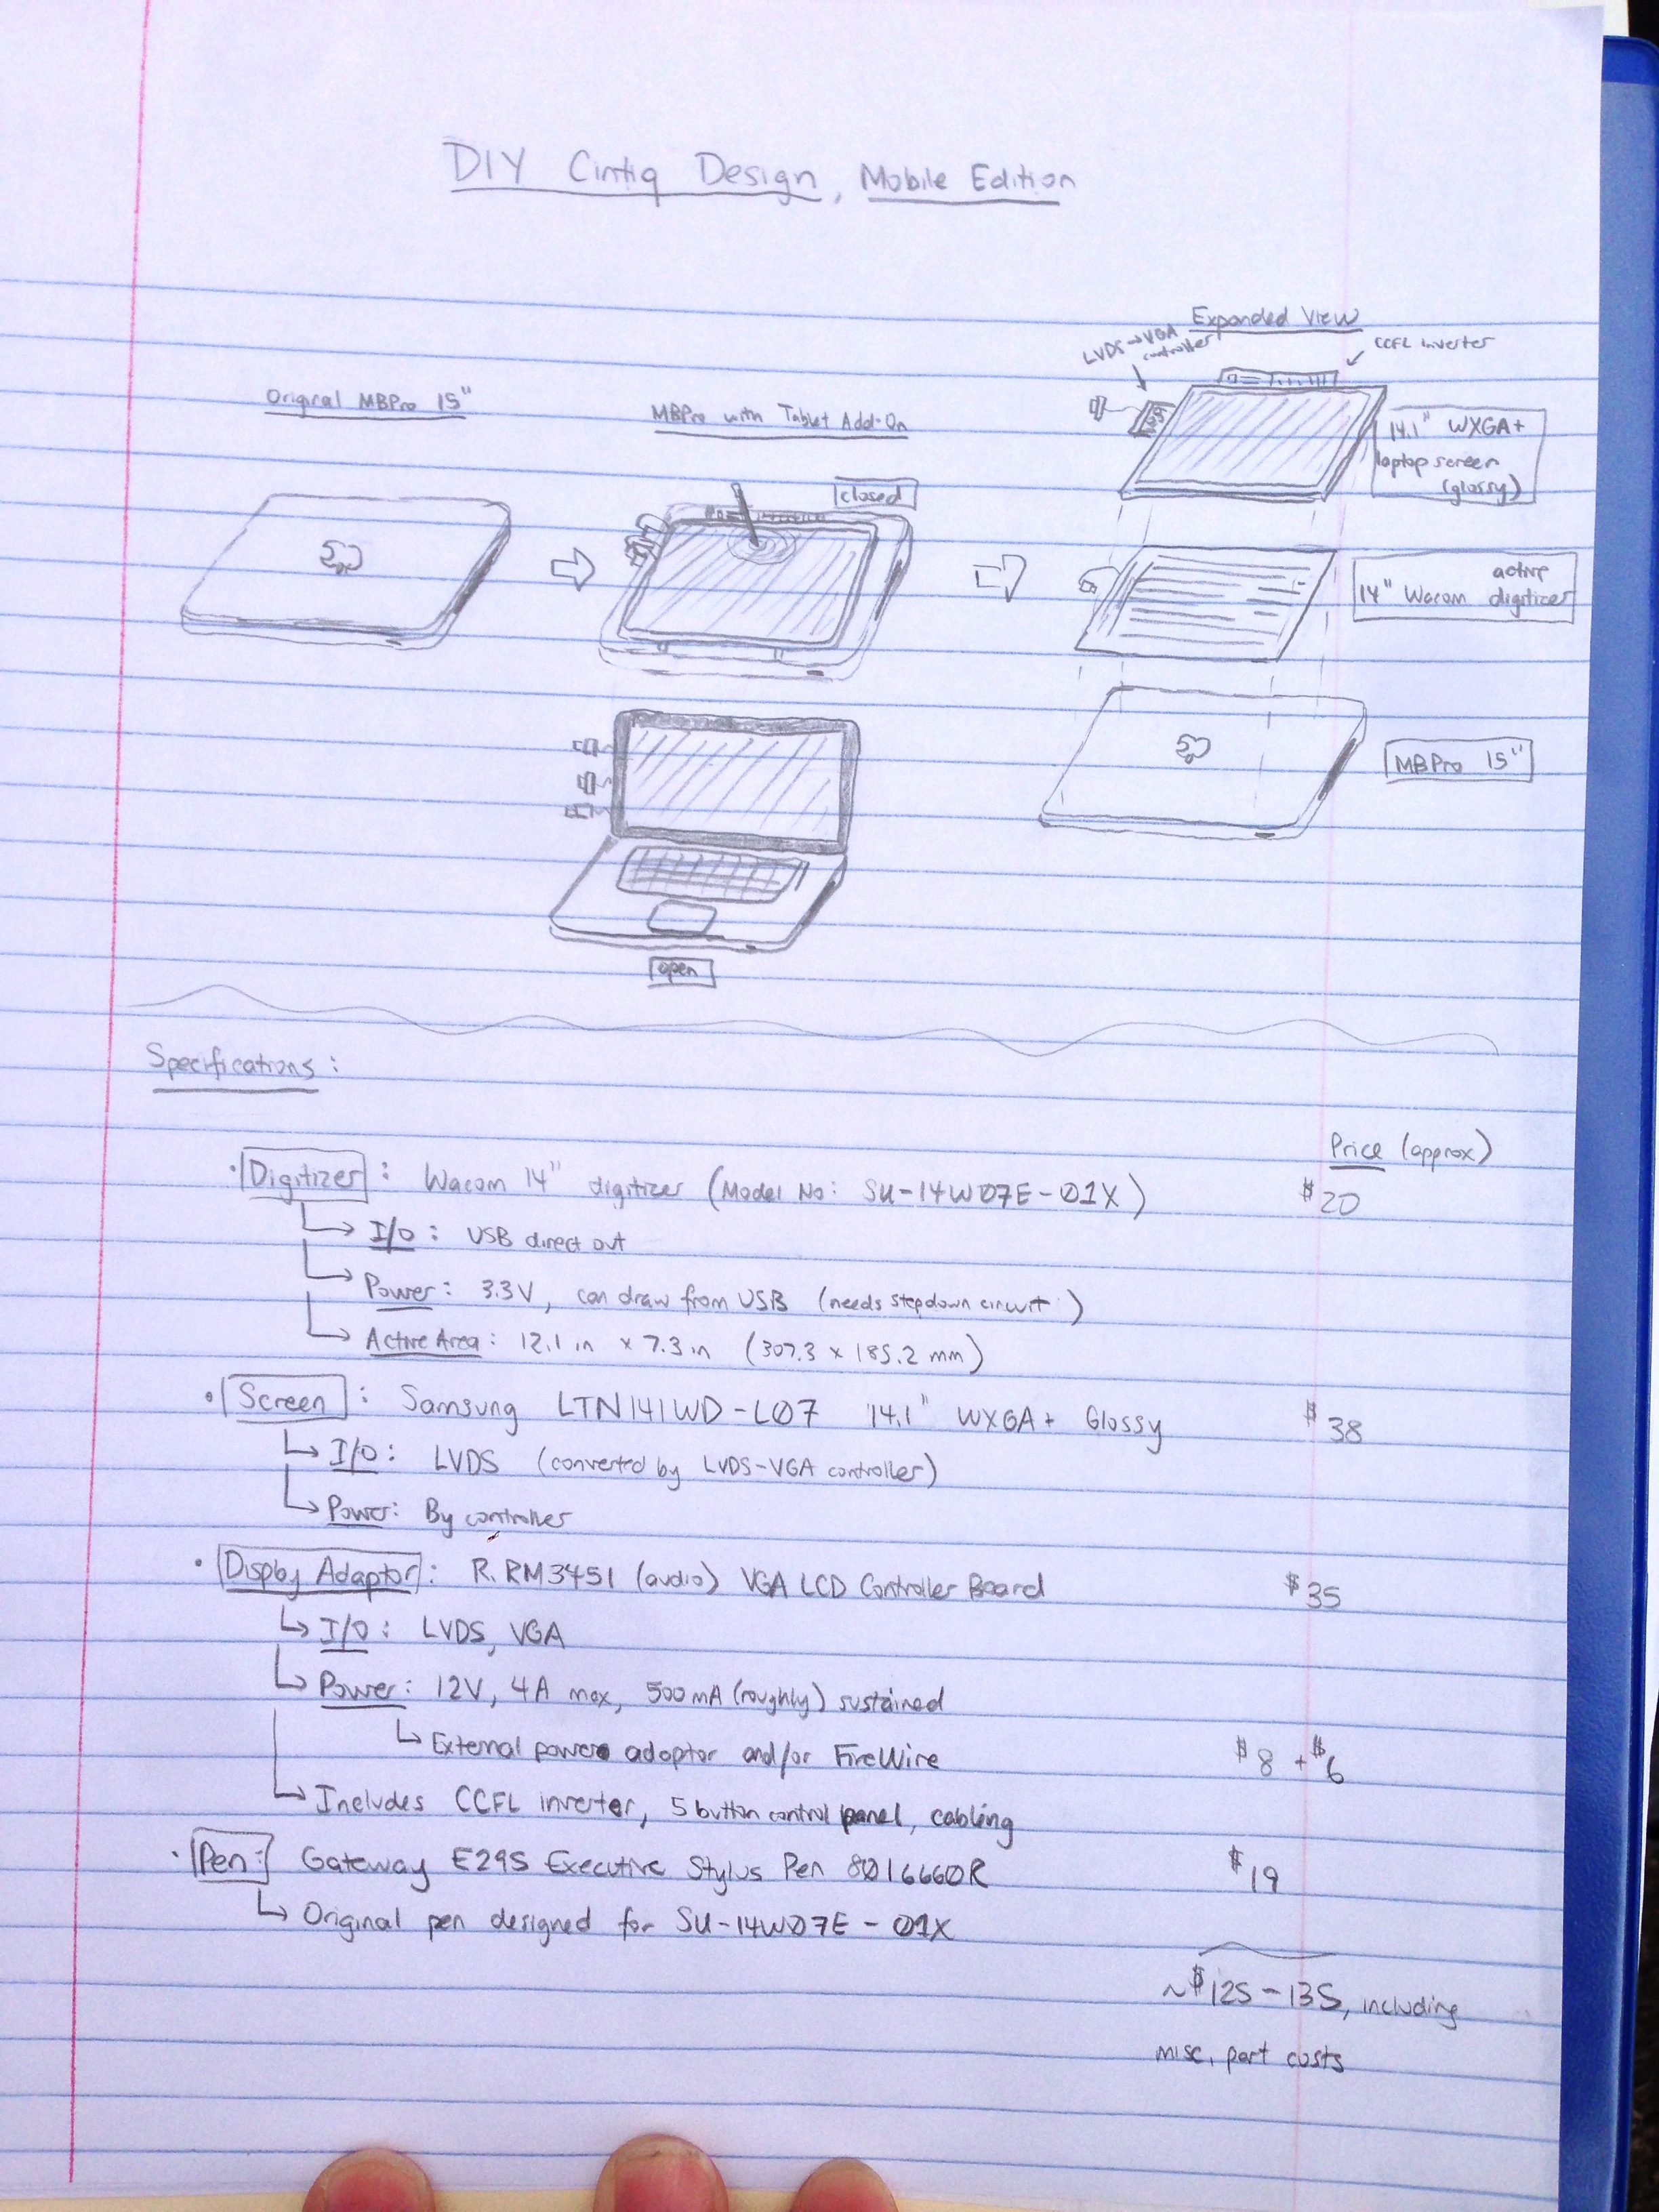 DIY Cintiq Design, Mobile Edition
Expanded View
LVDS→VGA controller
CCFL inverter
Original MBPro 15"
MBPro with Tablet Add-On
closed
14.1" WXGA+
laptop screen
(glossy)
active
14" Wacom digitizer
MBPro 15"
open
Specifications:
Price (approx)
• Digitizer: Wacom 14" digitizer (Model No: SU-14W07E-01X) $20
↳ I/O: USB direct out
↳ Power: 3.3V, can draw from USB (needs stepdown circuit)
↳ Active Area: 12.1 in x 7.3 in (307.3 x 185.2 mm)
• Screen: Samsung LTN141WD-L07 14.1" WXGA+ Glossy $38
↳ I/O: LVDS (converted by LVDS-VGA controller)
↳ Power: By controller
• Display Adaptor: R.RM3451 (audio) VGA LCD Controller Board $35
↳ I/O: LVDS, VGA
↳ Power: 12V, 4A max, 500mA (roughly) sustained
↳ External power adaptor and/or FireWire $8 + $6
↳ Includes CCFL inverter, 5 button control panel, cabling
• Pen: Gateway E295 Executive Stylus Pen 8016660R $19
↳ Original pen designed for SU-14W07E-01X
~$125-135, including
misc. part costs